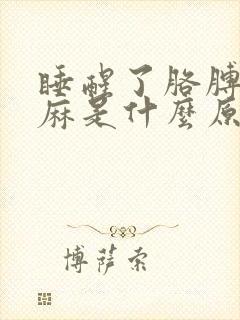 睡醒了胳膊
麻是什麼原
博薩索